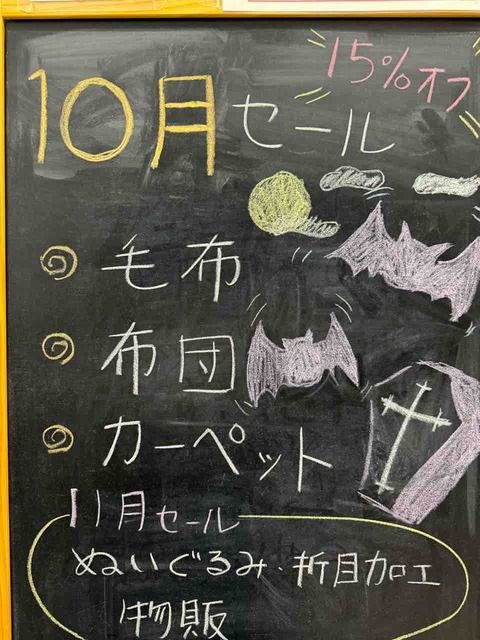 15%オフ
10月セール
毛布
布団
カーペット
11月セール
ぬいぐるみ・折目加工
物販